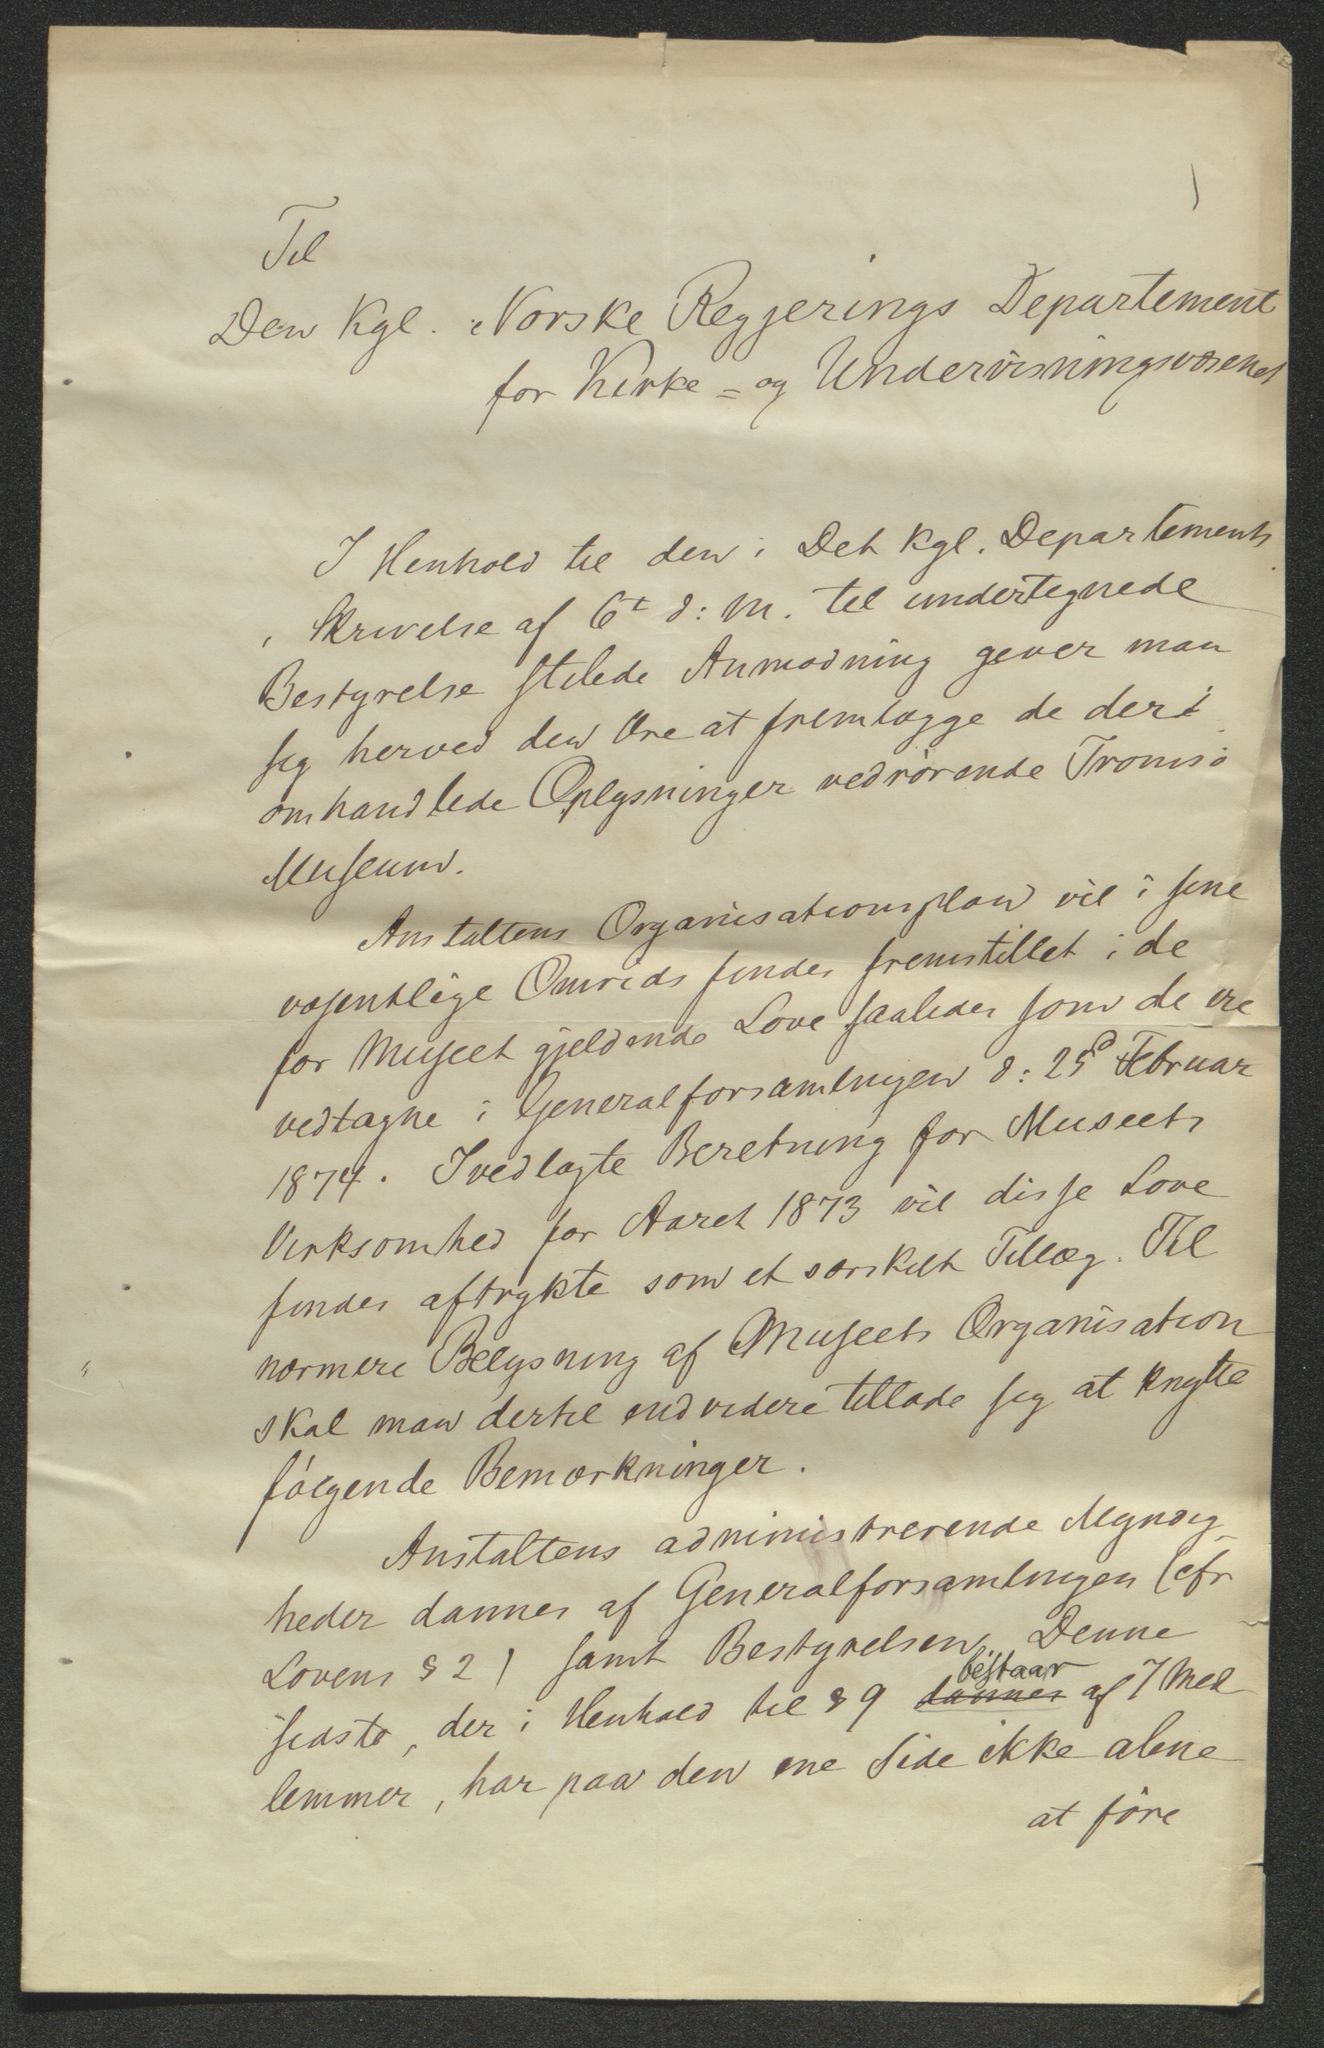 Til
Den Kgl. Norske Regjerings Departement
for Kirke= og Undervisningsvæsenet
I Henhold til den i Det Kgl. Departements
Skrivelse af 6t d: M. til undertegnede
Bestyrelse stilede Anmodning giver man
sig herved den Ære at fremlægge de deri
omhandlede Oplysninger vedrørende Tromsø
Museum.
Anstaltens Organisationsplan vil i sine
væsentlige Omrids findes fremstillet i de
for Museet gjeldende Love saaledes som de ere
vedtagne i Generalforsamlingen d: 25d Februar
1874. I vedlagte Beretning for Museets
Virksomhed for Aaret 1873 vil disse Love
findes aftrykte som et særskilt Tillæg. Til
nærmere Belysning af Museets Organisation
skal man dertil endvidere tillade sig at knytte
følgende Bemærkninger.
Anstaltens administrerende Myndig-
heder dannes af Generalforsamlingen (cfr
Lovens § 2) samt Bestyrelsen. Denne
bestaar
sidste, der i Henhold til § 9 dannes af 7 Med
lemmer, har paa den ene Side ikke alene
at føre